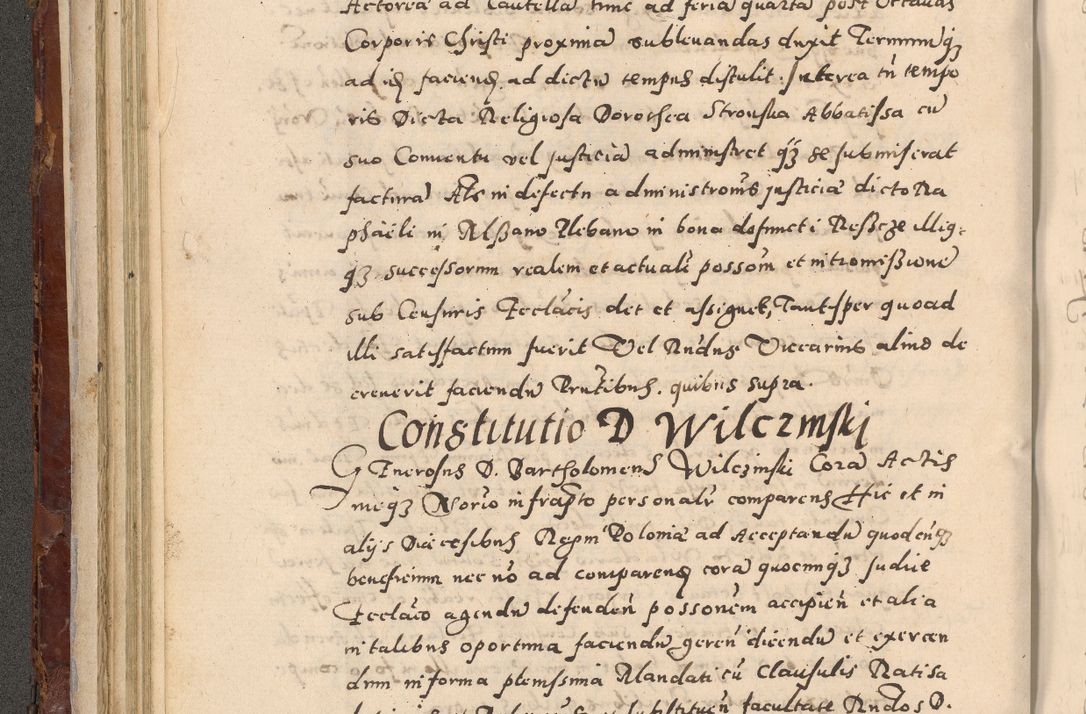 Actorea ad Cautella tunc ad feria quarta post Octauas
Corporis Christi proxima subleuandas duxit Terminuq3
ad id faciend ad dictu tempus distulit. Interea tn tempo
ris Dicta Religiosa Dorothea Stronska Abbatissa cu
suo Conuentu vel justicia administret q3 se submiserat
factura Als in defectu administrōnis justiciæ dicto Ra
phaeli in Plebano in bona defuncti illig
q3 successorum realem et actuale possom et intromissione
sub Censuris Ecclācis det et assignet, Tantisper quoad
illi satisfactum fuerit Vel Rndus Viccarius aliud de
creuerit faciendu Prntibus. quibus supra.
Constitutio D Wilczinski
Generosus D. Bartholomeus Wilczinski Cora Actis
meq3 Notrio infrapto personalr comparens Hic et in
alijs Diæcesibus Regni Poloniæ ad Acceptandu quodcuq3
beneficium nec no ad comparend cora quocunq3 Judice
Ecclaco agendu defenden possonem accipien et alia
in talibus oportuna faciendu geren dicendu et exercen
dum in forma plenissima Mandati cu Clausulis Ratisa
substituen facultate Rndos D.